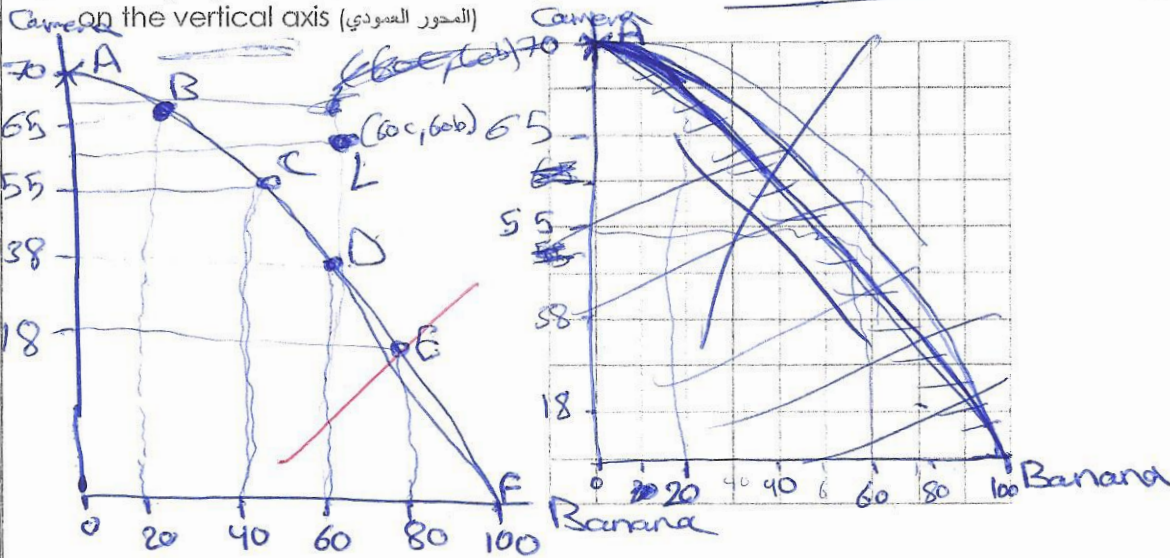 on the vertical axis (المحور العمودي)
Camera
70 A
B
65
(60c, 60b)
C
L
55
38
D
18
E
F
0 20 40 60 80 100
Banana
Camera
70 A
65
55
38
18
0 20 40 40 60 80 100
Banana